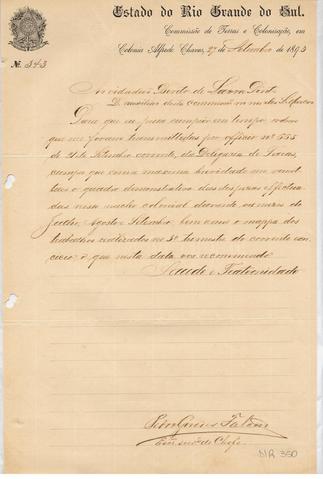 Estado do Rio Grande do Sul.
Commissão de Terras e Colonisação, em
Colonia Alfredo Chaves, 27 de Setembro de 1893
Nº 343
Ao cidadão Bento de
D. auxiliar desta commissão
Para que eu possa cumprir em tempo ordens
que me foram transmittidas por officio nº 555
de Setembro corrente, da Delegacia de Terras,
cumpre que com a maxima brevidade me
o quadro demonstrativo das despezas effectua-
das nesse nucleo colonial durante os mezes de
Julho, Agosto e Setembro bem como o mappa dos
trabalhos realizados no 3º trimestre do corrente
o que nesta data vos recommendo
Saude e Fraternidade
de Chefe
NR 350